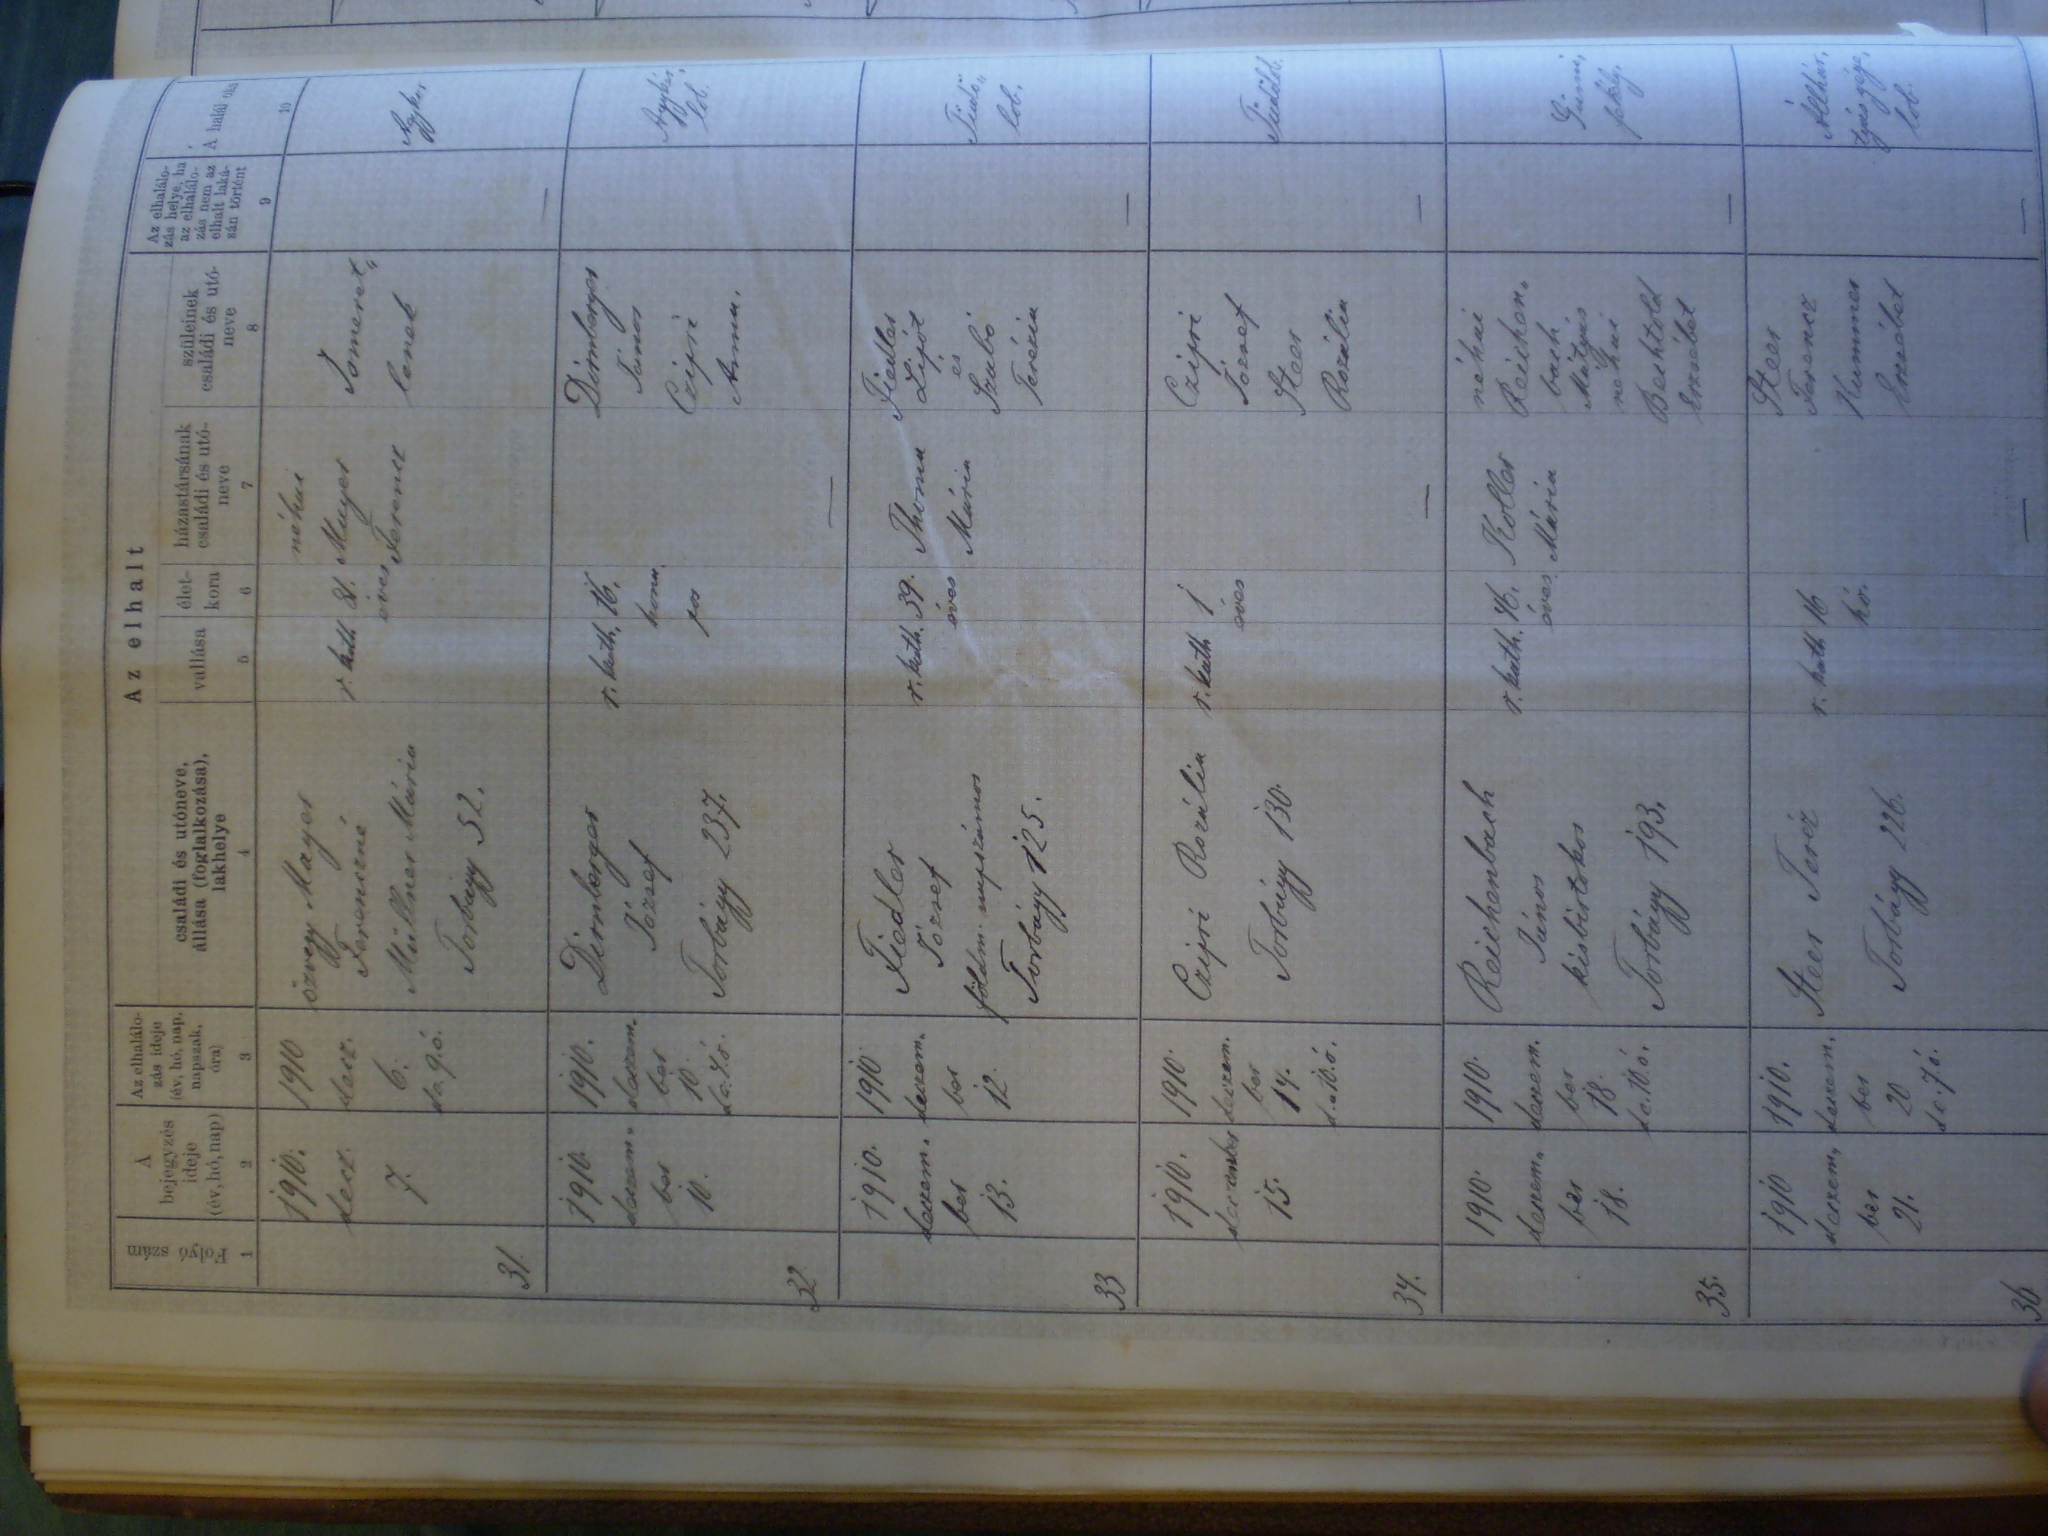 Az elhalt
Folyó szám
A bejegyzés ideje (év, hó, nap)
Az elhalálo-
zás ideje
(év, hó, nap,
napszak,
óra)
családi és utóneve,
állása (foglalkozása),
lakhelye
vallása
élet-
kora
házastársának
családi és utó-
neve
szüleinek
családi és utó-
neve
Az elhalálo-
zás helye, ha
az elhalálo-
zás nem az
elhalt laká-
sán történt
A halál oka
1
2
3
4
5
6
7
8
9
10
31.
1910.
dec.
7.
1910
dec.
6.
de. 9. ó.
özvegy Mayer
Ferencné
Müllner Mária
Torbágy 52.
r. kath
éves
néhai
Mayer
Ferenc
Ismeret„
lenek
—
32
1910.
decem„
ber
10.
1910.
decem.
ber
10.
Dörnberger
József
Torbágy 237.
r. kath.
16.
—
Dörnberger
János
Czipri
Anna.
lob.
33
1910.
decem.
ber
13.
1910
decem.
ber
12.
Fiedler
József
földm. napszámos
Torbágy 125.
r. kath.
39.
éves
Thoma
Mária
Fiedler
Lipót
és
Szabó
Terézia
—
Tüdő„
lob.
34.
1910.
december
15.
1910.
decem.
ber
14.
d. e. 10. ó.
Czipri Rozália
Torbágy 130.
r. kath
1
éves
—
Czipri
József
Steer
Rozália
—
Tüdőlob.
35.
1910.
decem.
ber
18.
1910.
decem.
ber
18.
de. 10 ó.
Reichenbach
János
kisbirtokos
Torbágy 193.
r. kath.
76.
éves.
Koller
Mária
néhai
Reichen„
bach
Mátyás
néhai
Bechtold
Erzsébet
—
36
1910
decem.
ber
21.
1910.
decem.
ber
20
de. 7 ó.
Steer Teréz
Torbágy 226.
r. kath
16
hó.
—
Steer
Ferencz
Kummer
Erzsébet
—
lob.